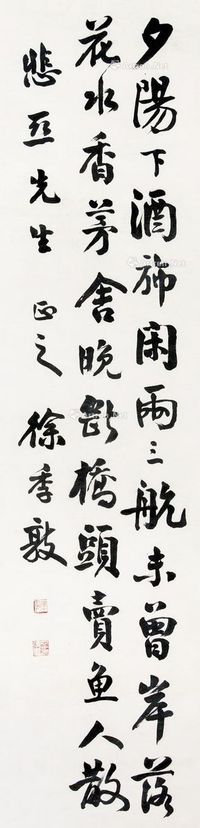 夕陽下酒旆閑兩三航未曾岸落
花水香茅舍晚斷橋頭賣魚人散
先生 正之 徐季敦